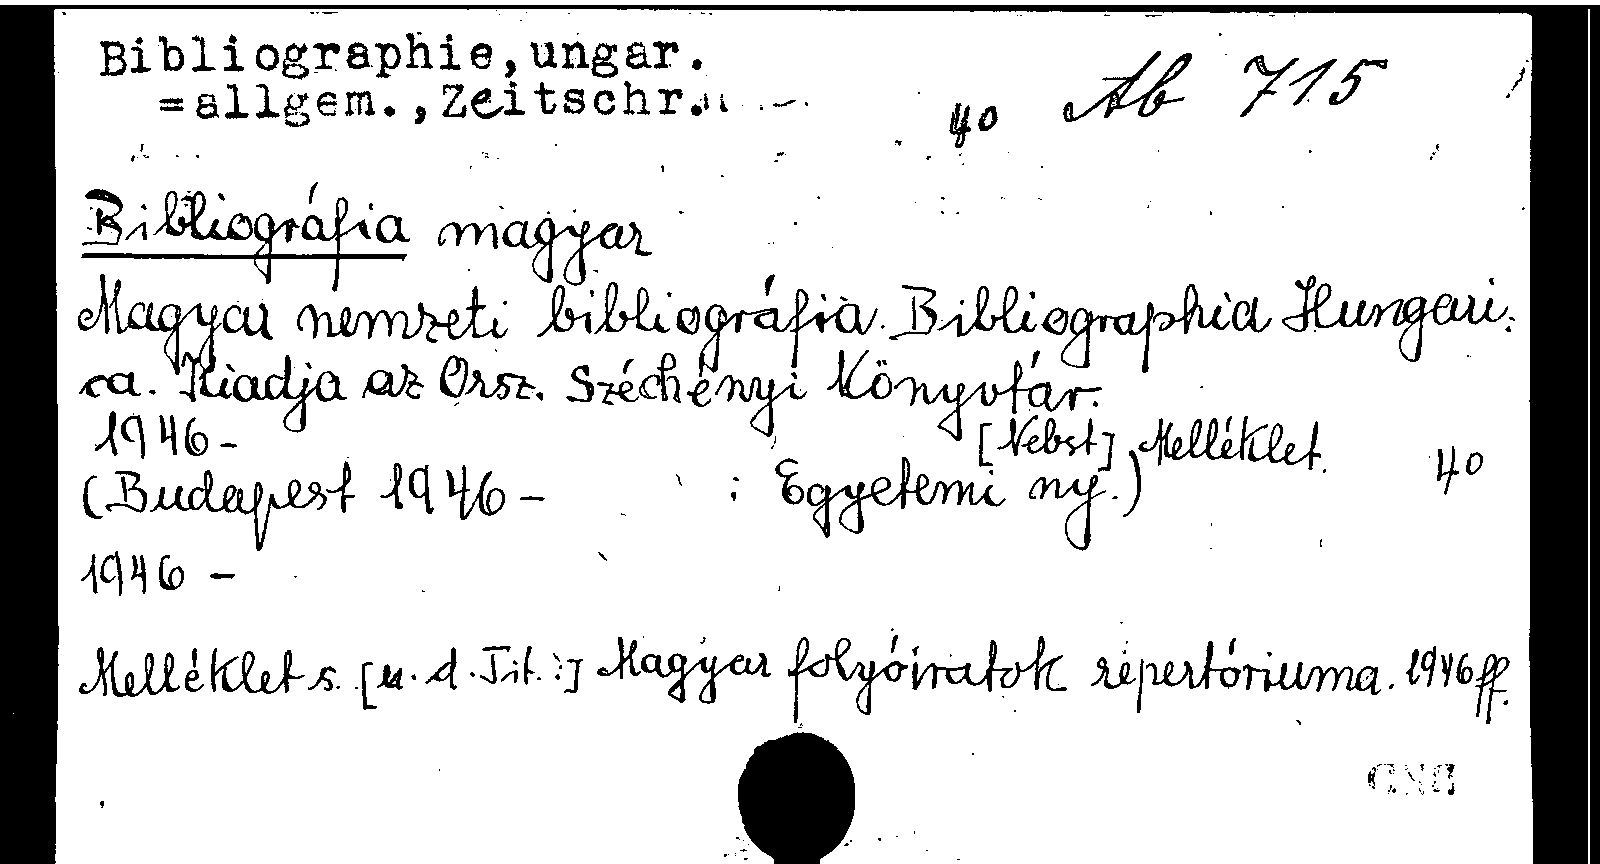 Bibliographie,ungar.
=allgem.,Zeitschr.
40 Ab 715
Bibliográfia magyar
Magyar nemzeti bibliográfia. Bibliographia Hungari-
ca. Kiadja az Orsz. Széchényi Könyvtár.
1946- [Nebst] Melléklet.
(Budapest 1946- : Egyetemi ny.) 40
1946 -
Melléklet s. [u. d. Tit.:] Magyar folyóiratok repertóriuma. 1946 ff.